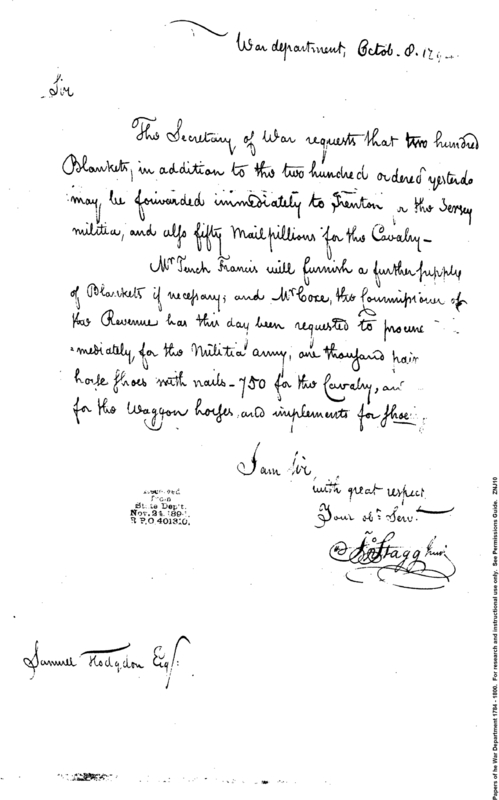 War department, Octob. 8. 179
Sir
The Secretary of War requests that two hundred
Blankets, in addition to the two hundred ordered yesterda
may be forwarded immediately to Trenton for the Jersey
militia, and also fifty Mailpillions for the Cavalry—
Mr Tench Francis will furnish a further supply
of Blankets if necessary; and Mr Coxe, the Commissioner of
the Revenue has this day been requested to procure
mediately, for the Militia army, one thousand pair
horse shoes with nails—750 for the Cavalry, an
for the Waggon horses, and implements for shoe
I am Sir,
with great respect
Your obt. Serv.
Jno Stagg Junr
Received
from
State Dep't.
Nov. 24, 1894.
R P.O 401310.
Samuel Hodgdon Esqr.
Papers of he War Department 1784 - 1800. For research and instructional use only. See Permissions Guide. ZNJ10